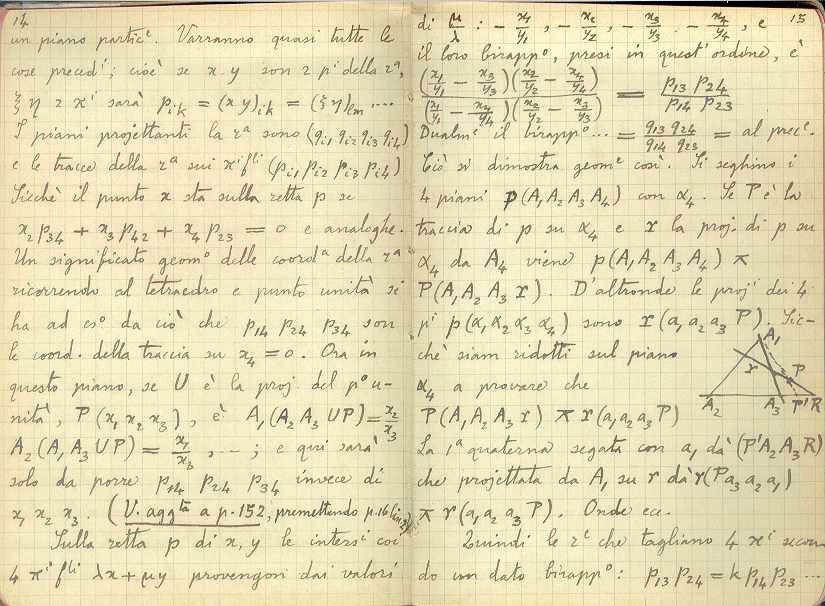 14
un piano partic^e. Varranno quasi tutte le
cose preced^i; cioè se x y son 2 p^i della r^a,
ξ η 2 π^i sarà p_{ik} = (x y)_{ik} = (ξ η)_{lm} ....
I piani projettanti la r^a sono (q_{i1} q_{i2} q_{i3} q_{i4})
e le tracce della r^a sui π^i f^{li} (p_{i1} p_{i2} p_{i3} p_{i4})
Sicchè il punto x sta sulla retta p se
x_2 p_{34} + x_3 p_{42} + x_4 p_{23} = 0 e analoghe.
Un significato geom^o delle coord^a della r^a
ricorrendo al tetraedro e punto unità si
ha ad es^o da ciò che p_{14} p_{24} p_{34} son
le coord. della traccia su x_4 = 0. Ora in
questo piano, se U è la proj. del p^o u-
nità, P(x_1 x_2 x_3), è A_1(A_2 A_3 U P) = x_2/x_3
A_2(A_1 A_3 U P) = x_1/x_3, -- ; e qui sarà
solo da porre p_{14} p_{24} p_{34} invece di
x_1 x_2 x_3. (V. aggta a p. 152, premettendo p. 16 lin. 2)
Sulla retta p di x, y le inters^i coi
4 π^i f^{li} λx + μy provengon dai valori
15
di μ/λ : - x_1/y_1, - x_2/y_2, - x_3/y_3, - x_4/y_4, e
il loro birapp^o, presi in quest'ordine, è
(x_1/y_1 - x_3/y_3)(x_2/y_2 - x_4/y_4) / (x_1/y_1 - x_4/y_4)(x_2/y_2 - x_3/y_3) = p_{13} p_{24} / p_{14} p_{23}
Dualm^e il birapp^o... = q_{13} q_{24} / q_{14} q_{23} = al prec^e.
Ciò si dimostra geom^e così. Si seghino i
4 piani p(A_1 A_2 A_3 A_4) con α_4. Se P è la
traccia di p su α_4 e r la proj. di p su
α_4 da A_4 viene p(A_1 A_2 A_3 A_4) π
P(A_1 A_2 A_3 r). D'altronde le proj^i dei 4
p^i p(α_1 α_2 α_3 α_4) sono r(a_1 a_2 a_3 P). Sic-
chè siam ridotti sul piano
α_4 a provare che
P(A_1 A_2 A_3 r) π r(a_1 a_2 a_3 P)
A_1
r
P
A_2 A_3 P' R
La 1^a quaterna segata con a_1 dà (P' A_2 A_3 R)
che projettata da A_1 su r dà r(P a_3 a_2 a_1)
π r(a_1 a_2 a_3 P). Onde ecc.
Quindi le r^e che tagliano 4 π^i secon-
do un dato birapp^o : p_{13} p_{24} = k p_{14} p_{23} ...